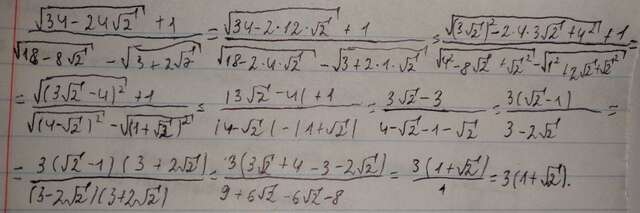 (√(34-2·4√2) + 1)/(√(18-8√2) - √(3+2√2)) = (√(34-2·12·√2) + 1)/(√(18-2·4·√2) - √(3+2·1·√2)) = (√((3√2)²-2·4·3√2+4²) + 1)/(√(4²-8√2+√2²) - √(1²+2√2+√2²)) =
= (√((3√2-4)²) + 1)/(√((4-√2)²) - √((1+√2)²)) = (|3√2-4| + 1)/(|4-√2| - |1+√2|) = (3√2-3)/(4-√2-1-√2) = (3(√2-1))/(3-2√2) =
= (3(√2-1)(3+2√2))/((3-2√2)(3+2√2)) = (3(3√2+4-3-2√2))/(9+6√2-6√2-8) = (3(1+√2))/1 = 3(1+√2).